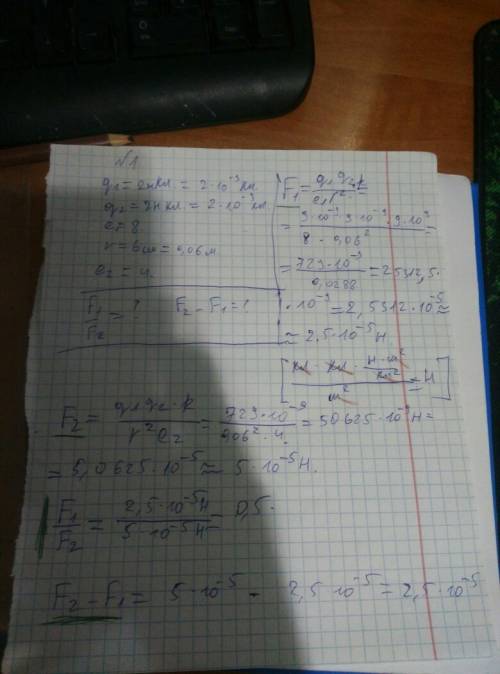 №1
q₁ = 2нКл = 2·10⁻⁹ Кл
q₂ = 2нКл = 2·10⁻⁹ Кл
e₁ = 8
r = 6см = 0,06 м
e₂ = 4
F₁/F₂ = ? F₂ - F₁ = ?
F₁ = q₁q₂·k / e₁r² =
= 9·10⁻⁹·9·10⁻⁹·9·10⁹ / 8·0,06² =
= 729·10⁻⁹ / 0,0288 = 25312,5·
·10⁻⁹ = 2,5312·10⁻⁵ ≈
≈ 2,5·10⁻⁵ Н
[Кл·Кл·Н·м²/Кл² / м² = Н]
F₂ = q₁q₂·k / r²e₂ = 729·10⁻⁹ / 0,06²·4 = 50625·10⁻⁹ Н =
= 5,0625·10⁻⁵ ≈ 5·10⁻⁵ Н.
F₁/F₂ = 2,5·10⁻⁵Н / 5·10⁻⁵Н = 0,5.
F₂ - F₁ = 5·10⁻⁵ - 2,5·10⁻⁵ = 2,5·10⁻⁵